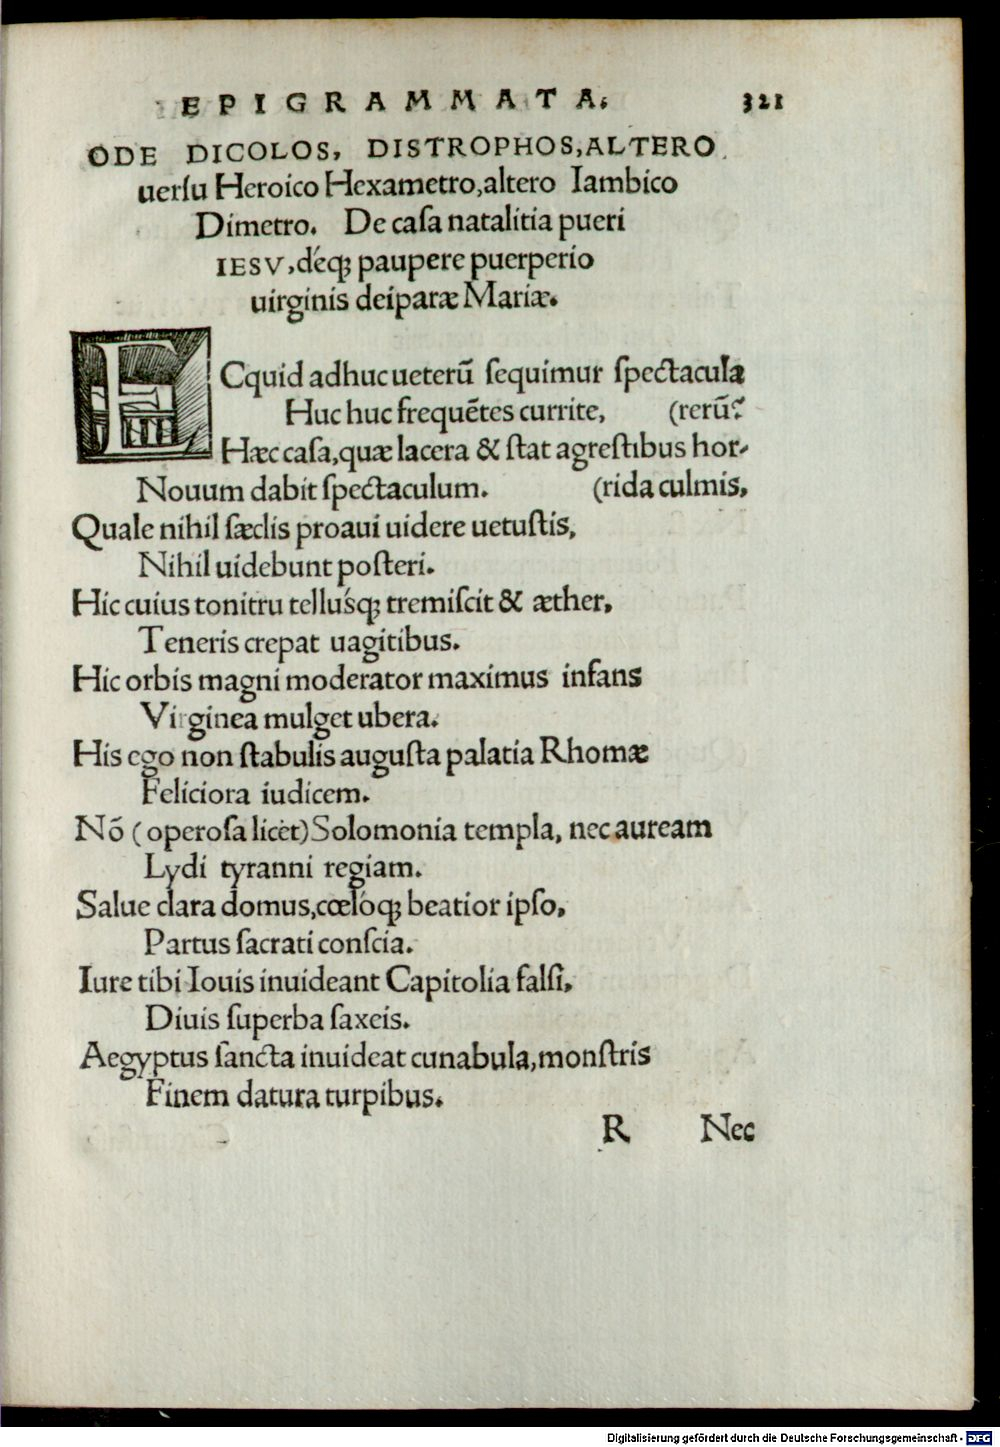 EPIGRAMMATA. 321
ODE DICOLOS, DISTROPHOS, ALTERO
uerſu Heroico Hexametro, altero Iambico
Dimetro. De caſa natalitia pueri
IESV, déq; paupere puerperio
uirginis deiparæ Mariæ.
ECquid adhuc ueterū ſequimur ſpectacula
Huc huc frequētes currite, (rerū?
Hæc caſa, quæ lacera & ſtat agreſtibus hor-
Nouum dabit ſpectaculum. (rida culmis,
Quale nihil ſæclis proaui uidere uetuſtis,
Nihil uidebunt poſteri.
Hic cuius tonitru tellúsq; tremiſcit & æther,
Teneris crepat uagitibus.
Hic orbis magni moderator maximus infans
Virginea mulget ubera.
His ego non ſtabulis auguſta palatia Rhomæ
Feliciora iudicem.
Nō (operoſa licèt) Solomonia templa, nec auream
Lydi tyranni regiam.
Salue clara domus, cœlóq; beatior ipſo,
Partus ſacrati conſcia.
Iure tibi Iouis inuideant Capitolia falſi,
Diuis ſuperba ſaxeis.
Aegyptus ſancta inuideat cunabula, monſtris
Finem datura turpibus.
R Nec
Digitalisierung gefördert durch die Deutsche Forschungsgemeinschaft - DFG